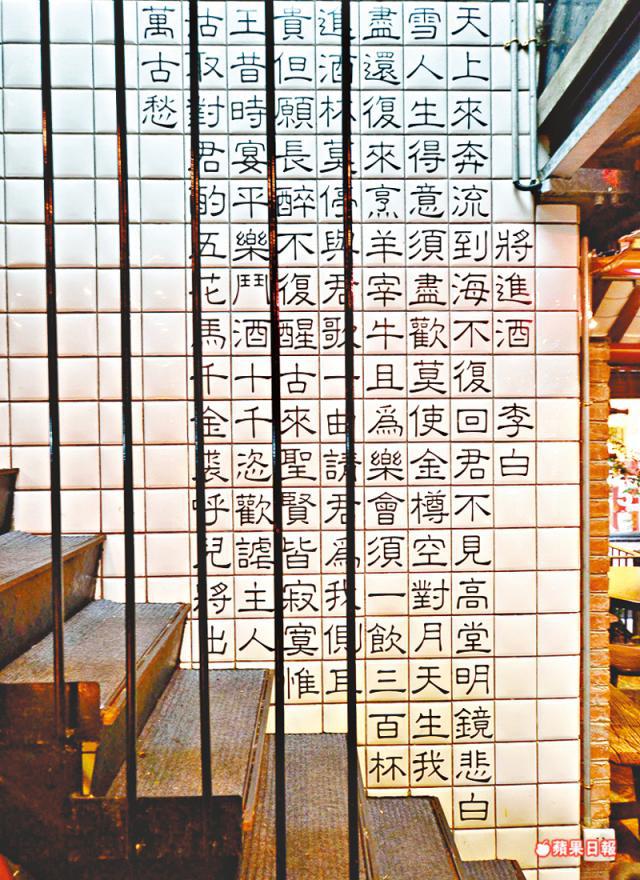 將進酒 李白
天上來奔流到海不復回君不見高堂明鏡悲白
雪人生得意須盡歡莫使金樽空對月天生我
盡還復來烹羊宰牛且爲樂會須一飲三百杯
進酒杯莫停與君歌一曲請君爲我側耳
貴但願長醉不復醒古來聖賢皆寂寞惟
王昔時宴平樂鬥酒十千恣歡謔主人
沽取對君酌五花馬千金裘呼兒將出
萬古愁
蘋果日報